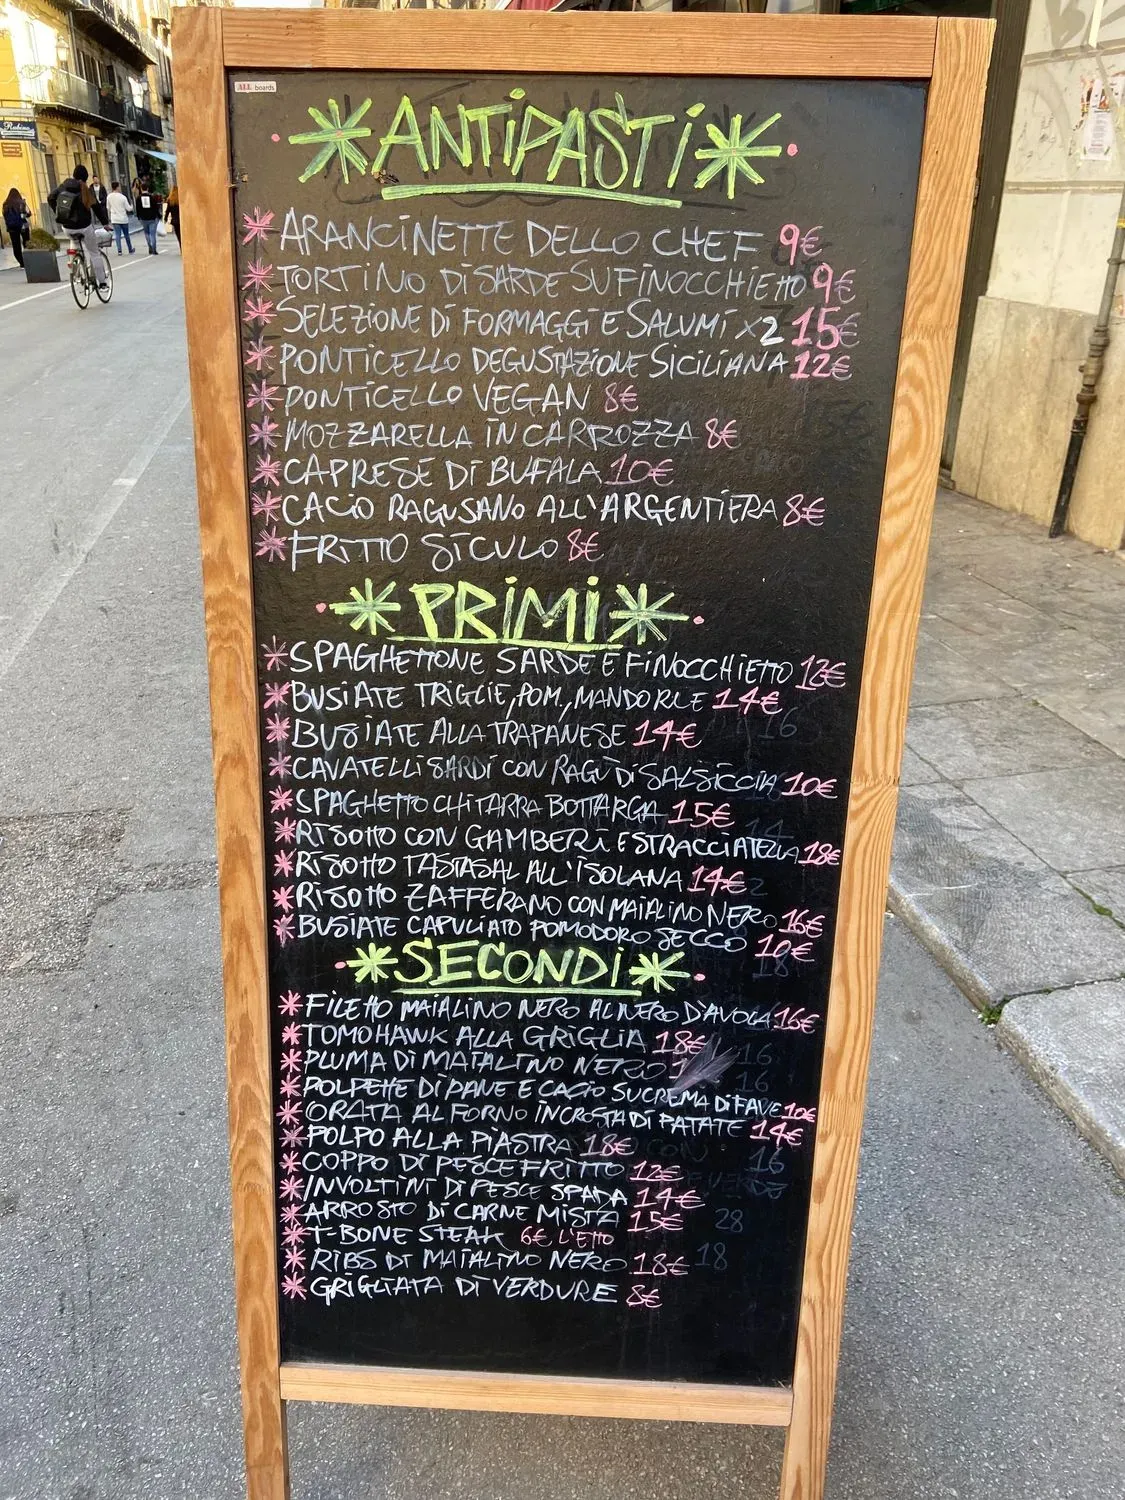 ALL boards
ANTIPASTI
ARANCINETTE DELLO CHEF 9€
TORTINO DI SARDE SU FINOCCHIETTO 9€
SELEZIONE DI FORMAGGI E SALUMI X2 15€
PONTICELLO DEGUSTAZIONE SICILIANA 12€
PONTICELLO VEGAN 8€
MOZZARELLA IN CARROZZA 8€
CAPRESE DI BUFALA 10€
CACIO RAGUSANO ALL'ARGENTIERA 8€
FRITTO SICULO 8€
PRIMI
SPAGHETTONE SARDE E FINOCCHIETTO 12€
BUSIATE TRIGLIE, POM., MANDORLE 14€
BUSIATE ALLA TRAPANESE 14€
CAVATELLI SARDI CON RAGÙ DI SALSICCIA 10€
SPAGHETTO CHITARRA BOTTARGA 15€
RISOTTO CON GAMBERI E STRACCIATELLA 18€
RISOTTO TASTASAL ALL'ISOLANA 14€
RISOTTO ZAFFERANO CON MAIALINO NERO 16€
BUSIATE CAPULIATO POMODORO SECCO 10€
SECONDI
FILETTO MAIALINO NERO AL NERO D'AVOLA 16€
TOMOHAWK ALLA GRIGLIA 18€
PLUMA DI MAIALINO NERO
POLPETTE DI PANE E CACIO SU CREMA DI FAVE 10€
ORATA AL FORNO IN CROSTA DI PATATE 14€
POLPO ALLA PIASTRA 18€
COPPO DI PESCE FRITTO 12€
INVOLTINI DI PESCE SPADA 14€
ARROSTO DI CARNE MISTA 15€
T-BONE STEAK 6€ L'ETTO
RIBS DI MAIALINO NERO 18€
GRIGLIATA DI VERDURE 8€